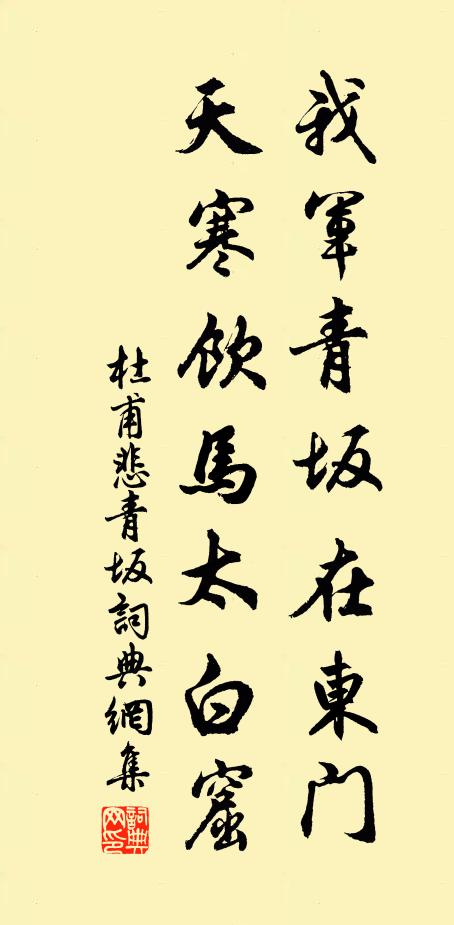 我軍青坂在東門
天寒飲馬太白窟
杜甫悲青坂詞典網集
詞典
网印